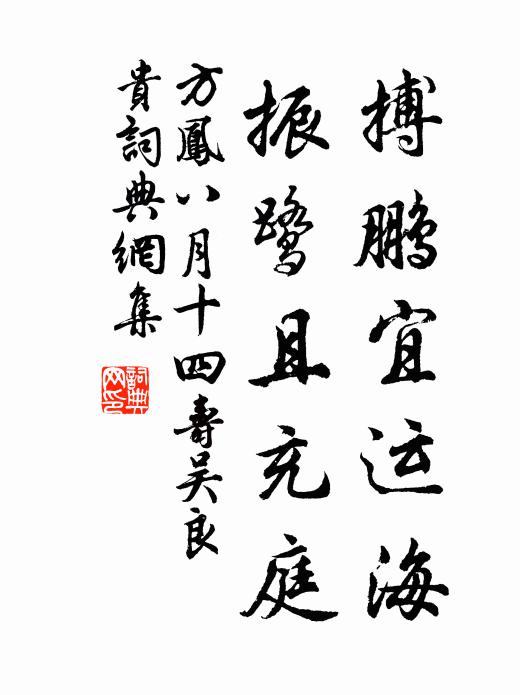 搏鹏宜运海
振鹭且充庭
方鳳八月十四壽吴良
貴詞典網集
詞典网印